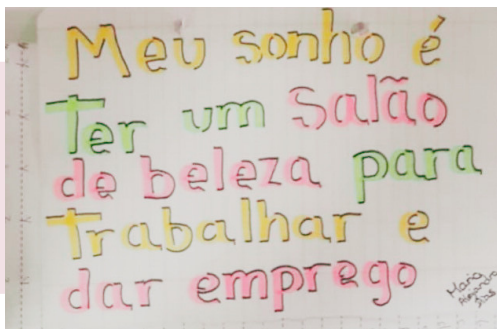 Meu sonho é
Ter um Salão
de beleza para
Trabalhar e
dar emprego
Maria
Dias